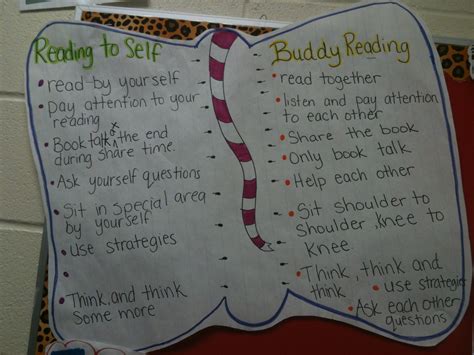 Reading to Self
• read by yourself
• pay attention to your
reading
• Book talk @ the end
during share time.
• Ask yourself questions
• Sit in special area
by yourself
• use strategies
•
• Think, and think
some more
Buddy Reading
• read together
• listen and pay attention
to each other
• Share the book
• Only book talk
• Help each other
• Sit shoulder to
shoulder, knee to
knee
• Think, think and
think • use strategies
• Ask each other
questions